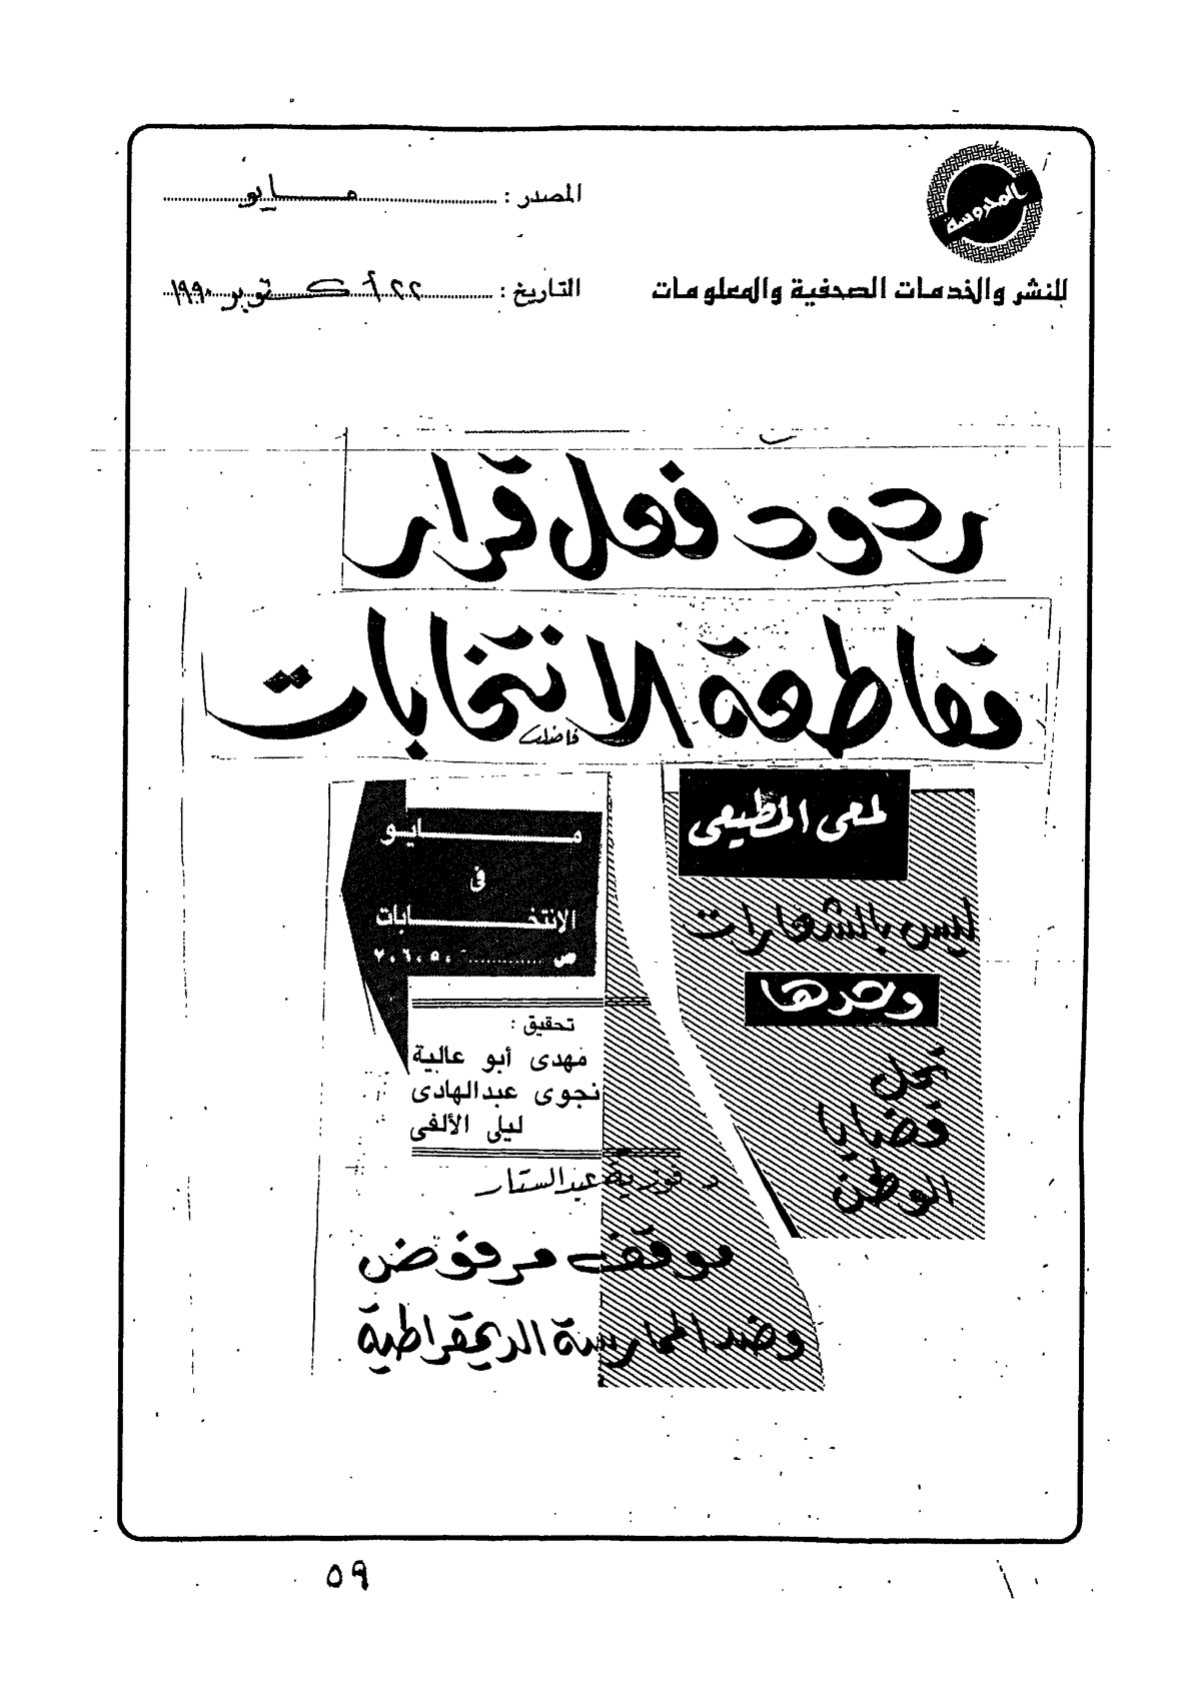 المحروسة
للنشر والخدمات الصحفية والمعلومات
المصدر : مايو
التاريخ : ٢٢ أكتوبر ١٩٩٠
ردود فعل قرار
مقاطعة الانتخابات
فاضل
لمعى المطيعى
ليس بالشعارات
وحدها
تحل
قضايا
الوطن
مايو
فى
الإنتخابات
ص ............ ٥، ٦، ٧
تحقيق :
مهدى أبو عالية
نجوى عبدالهادى
ليلى الألفى
د. فوزية عبدالستار
موقف مرفوض
وضد الممارسة الديمقراطية
٥٩